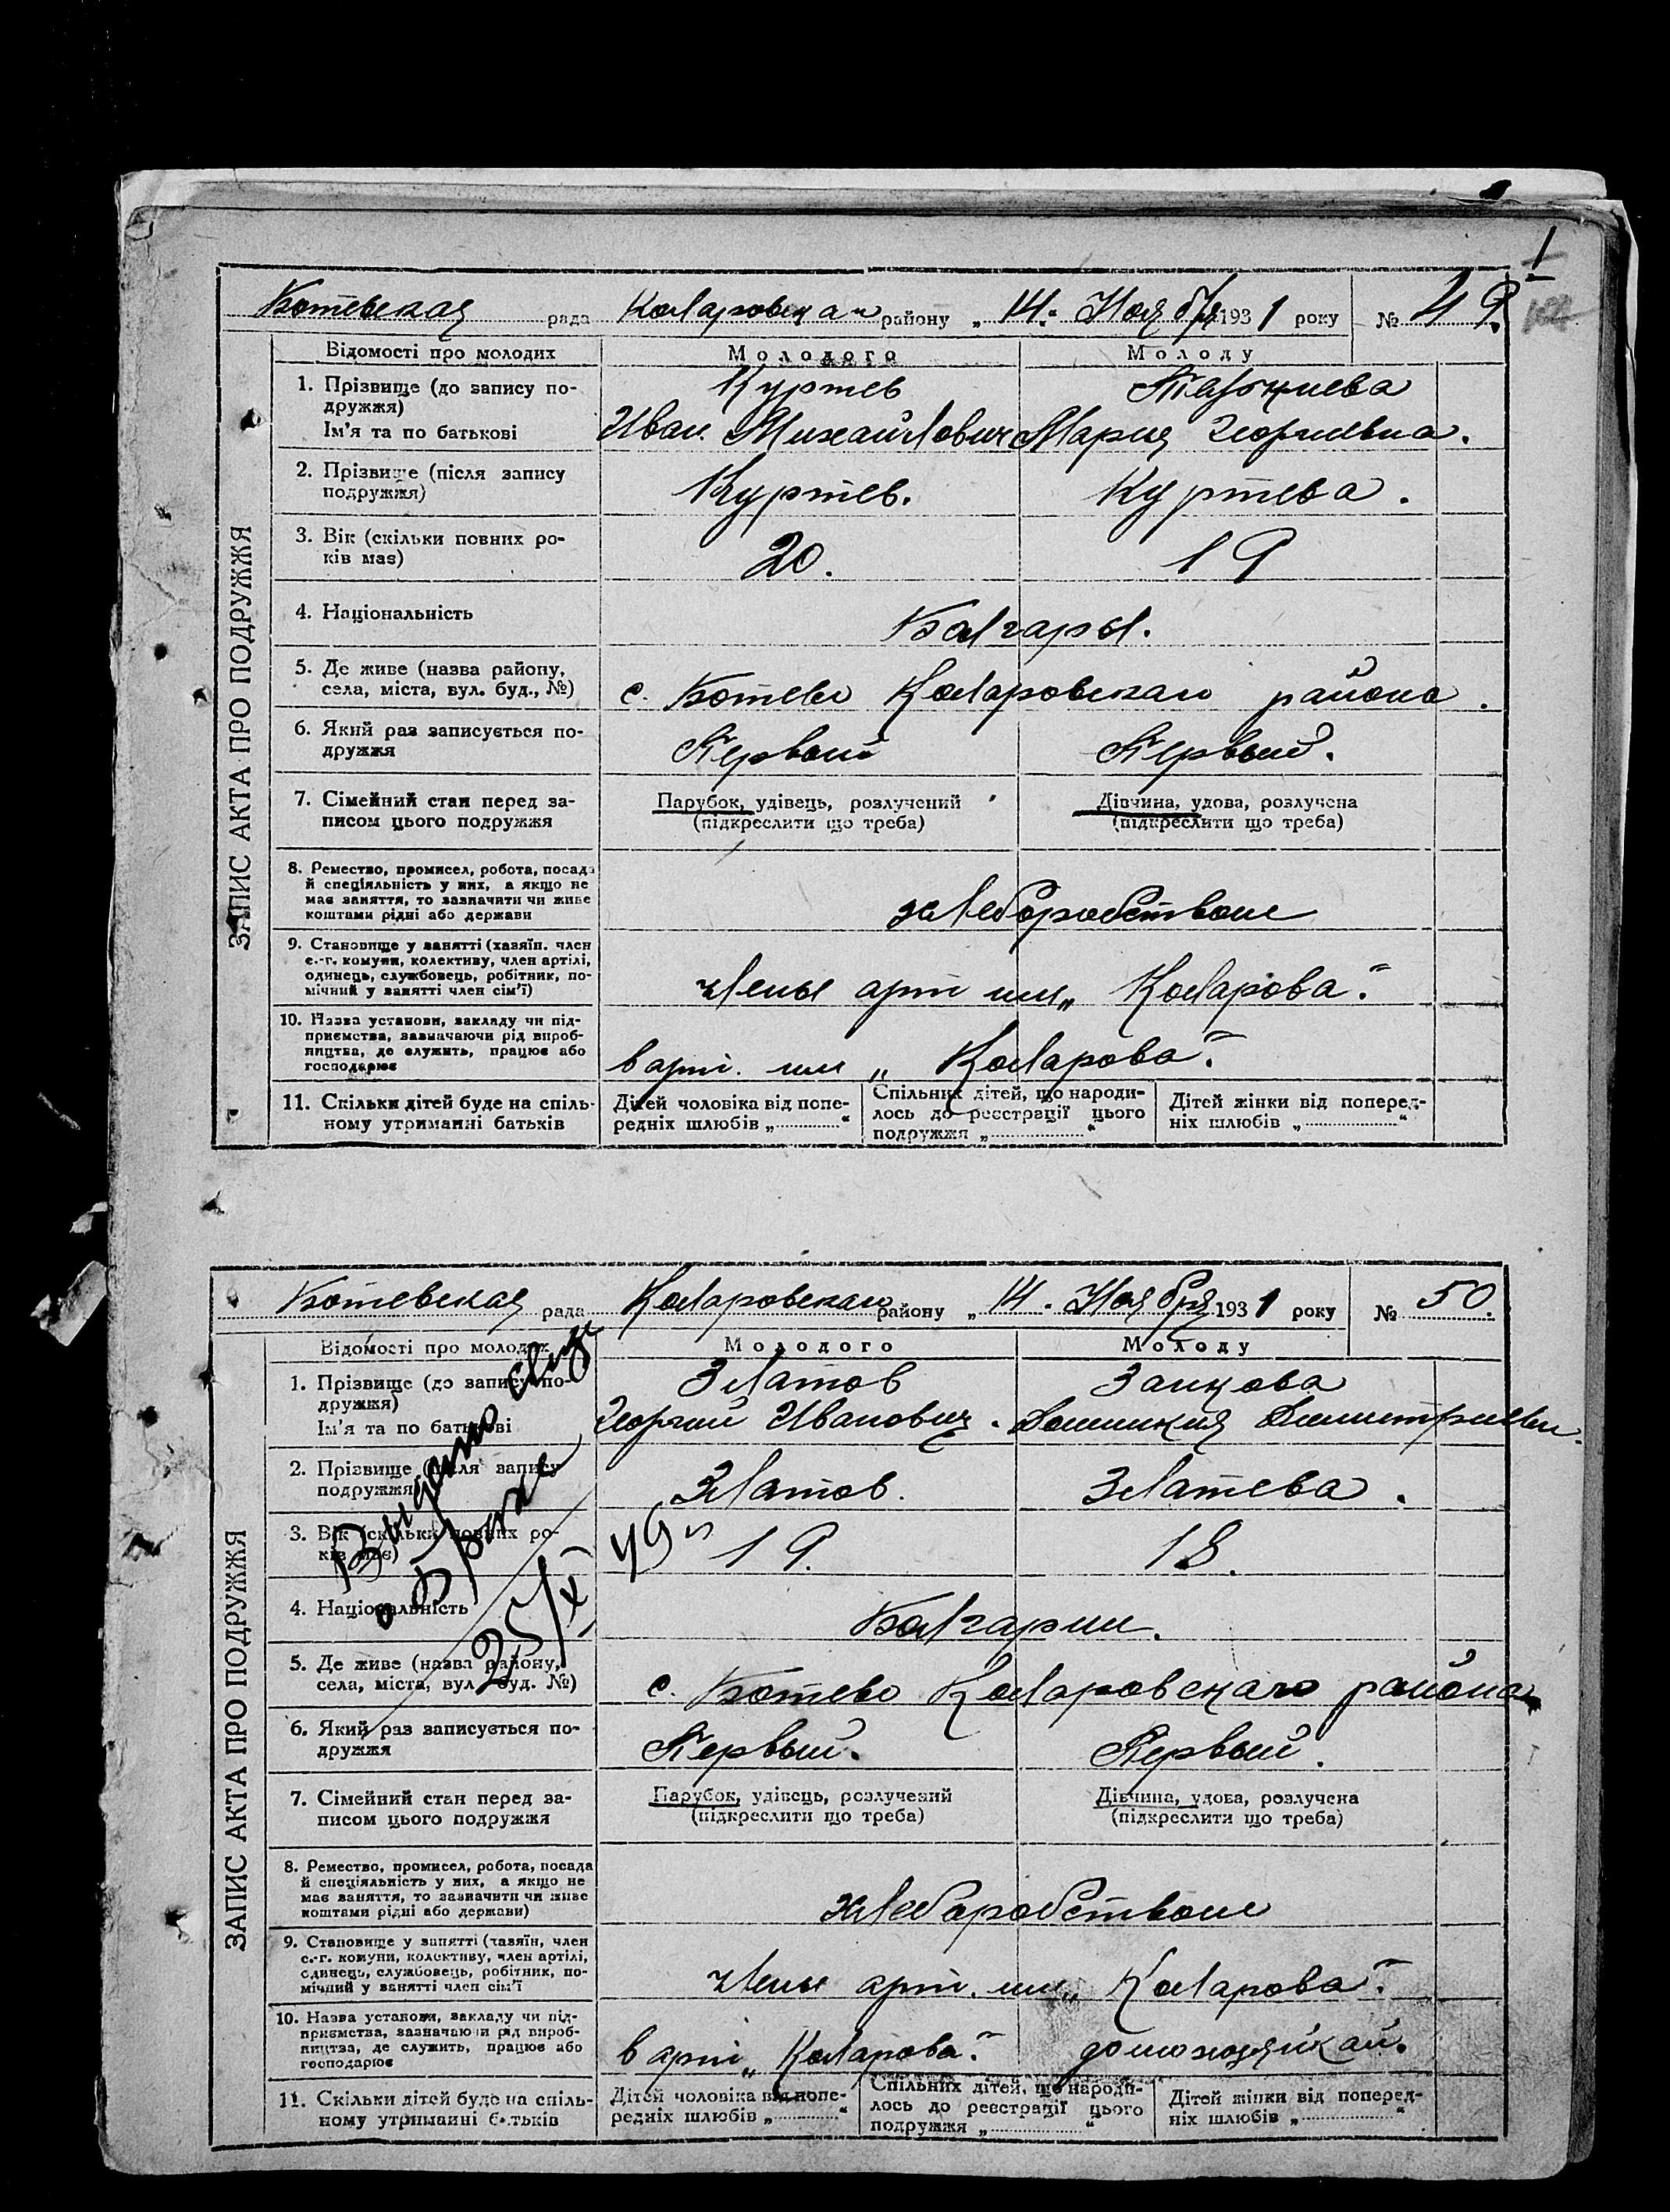 1
Ботевская рада Коларовская району „14" Ноября 1931 року № 49.
ЗАПИС АКТА ПРО ПОДРУЖЖЯ
Відомості про молодих Молодого Молоду
1. Прізвище (до запису по- Куртев
дружжя)
Ім'я та по батькові Иван Михайлович Мария Георгиевна.
2. Прізвище (після запису Куртев. Куртева.
подружжя)
3. Вік (скільки повних ро- 20. 19
ків має)
4. Національність Болгары.
5. Де живе (назва району, с. Ботево Коларовского района.
села, міста, вул. буд., №)
6. Який раз записується по- Первый Первый.
дружжя
7. Сімейний стан перед за- Парубок, удівець, розлучений Дівчина, удова, розлучена
писом цього подружжя (підкреслити що треба) (підкреслити що треба)
8. Ремество, промисел, робота, посада
й спеціяльність у них, а якщо не
має заняття, то зазначити чи живе хлеборобством
коштами рідні або держави
9. Становище у занятті (хазяїн. член
с.-г. комуни, колективу, член артілі,
одинець, службовець, робітник, по- члены арт им „Коларова".
мічний у занятті член сім'ї)
10. Назва установи, закладу чи під-
приємства, зазначаючи рід вироб-
ництва, де служить, працює або в арт. им „Коларова".
господарює
11. Скільки дітей буде на спіль- Дітей чоловіка від попе- Спільних дітей, що народи- Дітей жінки від поперед-
ному утриманні батьків редніх шлюбів „ “ лось до реєстрації цього ніх шлюбів „ “
подружжя „ “
Ботевская рада Коларовская району „14. Ноября 1931 року № 50.
ЗАПИС АКТА ПРО ПОДРУЖЖЯ
Відомості про молодих Молодого Молоду
1. Прізвище (до запису по- Златов Занкова
дружжя)
Ім'я та по батькові Георгий Иванович.
2. Прізвище (після запису Златов. Златева.
подружжя)
3. Вік (скільки повних ро- 19. 18.
ків має)
Выдано свид
о браке
25/XI 49 г
4. Національність Болгарии.
5. Де живе (назва району, с. Ботево Коларовского района
села, міста, вул буд. №)
6. Який раз записується по- Первый. Первый.
дружжя
7. Сімейний стан перед за- Парубок, удівець, розлучений Дівчина, удова, розлучена
писом цього подружжя (підкреслити що треба) (підкреслити що треба)
8. Ремество, промисел, робота, посада
й спеціяльність у них, а якщо не
має заняття, то зазначити чи живе хлеборобством
коштами рідні або держави)
9. Становище у занятті (хазяїн, член
с.-г. комуни, колективу, член артілі,
одинець, службовець, робітник, по- члены арт. им „Коларова".
мічний у занятті член сім'ї
10. Назва установи, закладу чи під-
приємства, зазначаючи рід вироб-
ництва, де служить, працює або в арт „Коларова". домохозяйкай.
господарює
11. Скільки дітей буде на спіль- Дітей чоловіка від попе- Спільних дітей, що народи- Дітей жінки від поперед-
ному утриманні батьків редніх шлюбів „ “ лось до реєстрації цього ніх шлюбів „ “
подружжя „ “